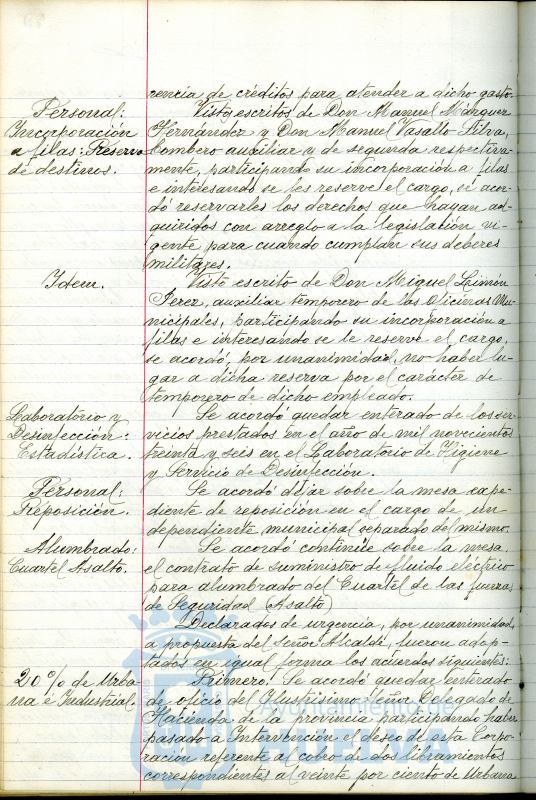 rencia de créditos para atender a dicho gasto.
Personal:
Incorporación
a filas: Reserva
de destinos.
Vistos escritos de Don Manuel Márquez
Hernández y Don Manuel Vasallo Silva,
bombero auxiliar y de segunda respectiva-
mente, participando su incorporación a filas
e interesando se les reserve el cargo, se acor-
dó reservarles los derechos que hayan ad-
quiridos con arreglo a la legislación vi-
gente para cuando cumplan sus deberes
militares.
Idem.
Visto escrito de Don Miguel Limón
Perez, auxiliar temporero de las Oficinas Mu-
nicipales, participando su incorporación a
filas e interesando se le reserve el cargo,
se acordó, por unanimidad, no haber lu-
gar a dicha reserva por el carácter de
temporero de dicho empleado.
Laboratorio y
Desinfección:
Estadistica.
Se acordó quedar enterado de los ser-
vicios prestados en el año de mil novecientos
treinta y seis en el Laboratorio de Higiene
y Servicio de Desinfección.
Personal:
Reposición.
Se acordó dejar sobre la mesa expe-
diente de reposición en el cargo de un
dependiente municipal separado del mismo.
Alumbrado:
Cuartel Asalto.
Se acordó continúe sobre la mesa
el contrato de suministro de fluido electrico
para alumbrado del Cuartel de las fuerzas
de Seguridad (Asalto)
Declarados de urgencia, por unanimidad,
a propuesta del Señor Alcalde, fueron adop-
tados en igual forma los acuerdos siguientes:
20% de Urba-
na é Industrial.
Primero: Se acordó quedar enterado
de oficio del Ilustrisimo Señor Delegado de
Hacienda de la provincia participando haber
pasado a Intervención el deseo de esta Corpo-
ración referente al cobro de dos libramientos
correspondientes al veinte por ciento de Urbana
Ayuntamiento de
HUELVA